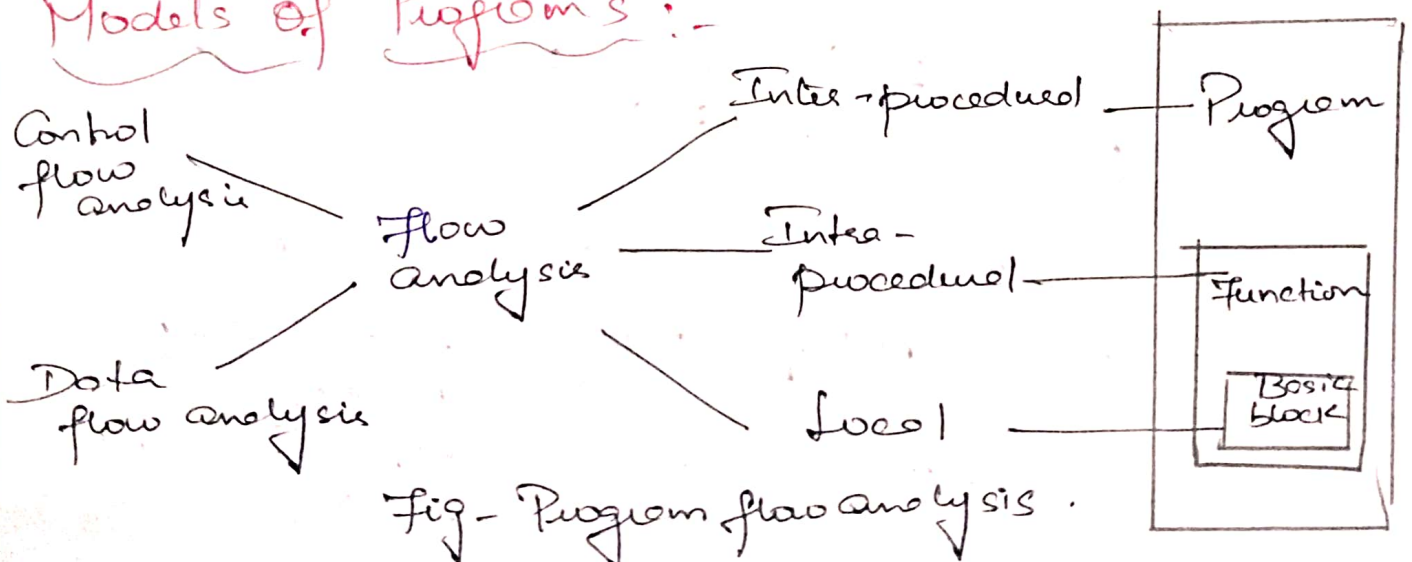 Models Of Programs :-
Control
flow
analysis
Flow
analysis
Data
flow analysis
Inter-procedural
Intra-
procedural
Local
Program
Function
Basic
block
Fig- Program flow analysis.